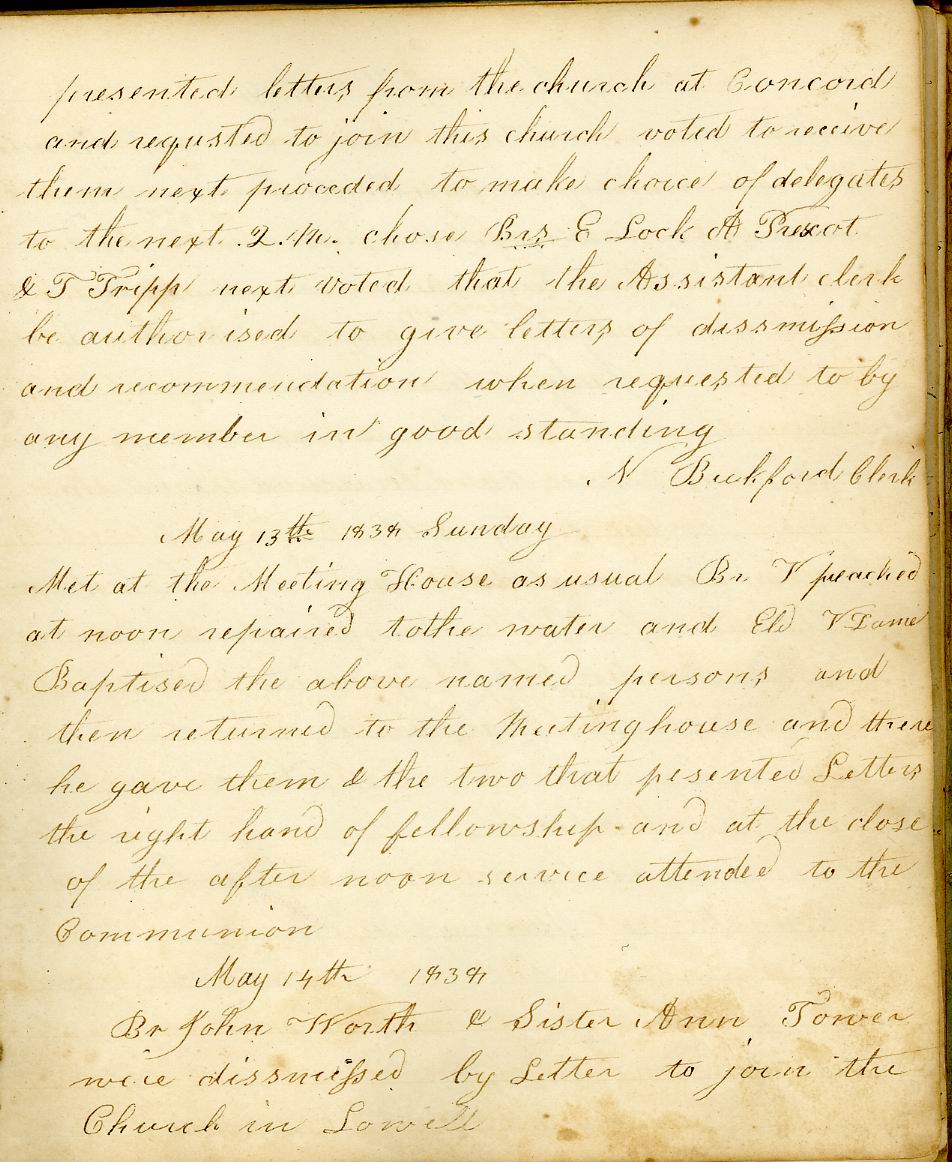 presented letters from the church at Concord
and requsted to join this church voted to receive
them next proceded to make choice of delegates
to the next Q. M. chose Brs E Lock A Prescot
& T Tripp next voted that the Assistant clerk
be authorised to give letters of dissmission
and recommendation when requested to by
any member in good standing
N Bickford Clerk
May 13th 1838 Sunday
Met at the Meeting House as usual Br V peached
at noon repaired to the water and Eld V Dame
Baptised the above named persons and
then returned to the Meetinghouse and there
he gave them & the two that pesented Letters
the right hand of fellowship and at the close
of the after noon service attended to the
Communion
May 14th 1838
Br John Worth & Sister Ann Tower
were dissmissed by Letter to join the
Church in Lowell